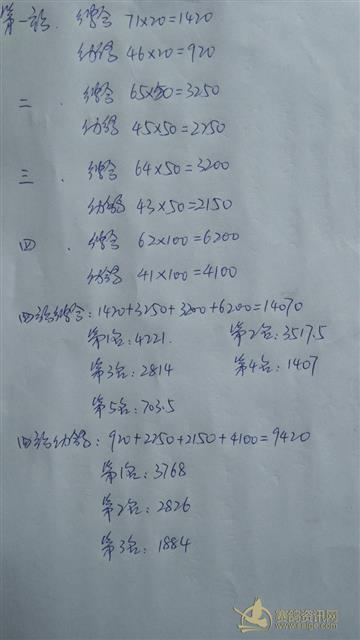 第一站. 综合 71×20=1420
幼鸽 46×20=920
二. 综合 65×50=3250
幼鸽 45×50=2250
三. 综合 64×50=3200
幼鸽 43×50=2150
四. 综合 62×100=6200
幼鸽 41×100=4100
四站综合:1420+3250+3200+6200=14070
第1名:4221. 第2名:3517.5
第3名:2814 第4名:1407
第5名:703.5
四站幼鸽:920+2250+2150+4100=9420
第1名:3768
第2名:2826
第3名:1884
赛鸽资讯网